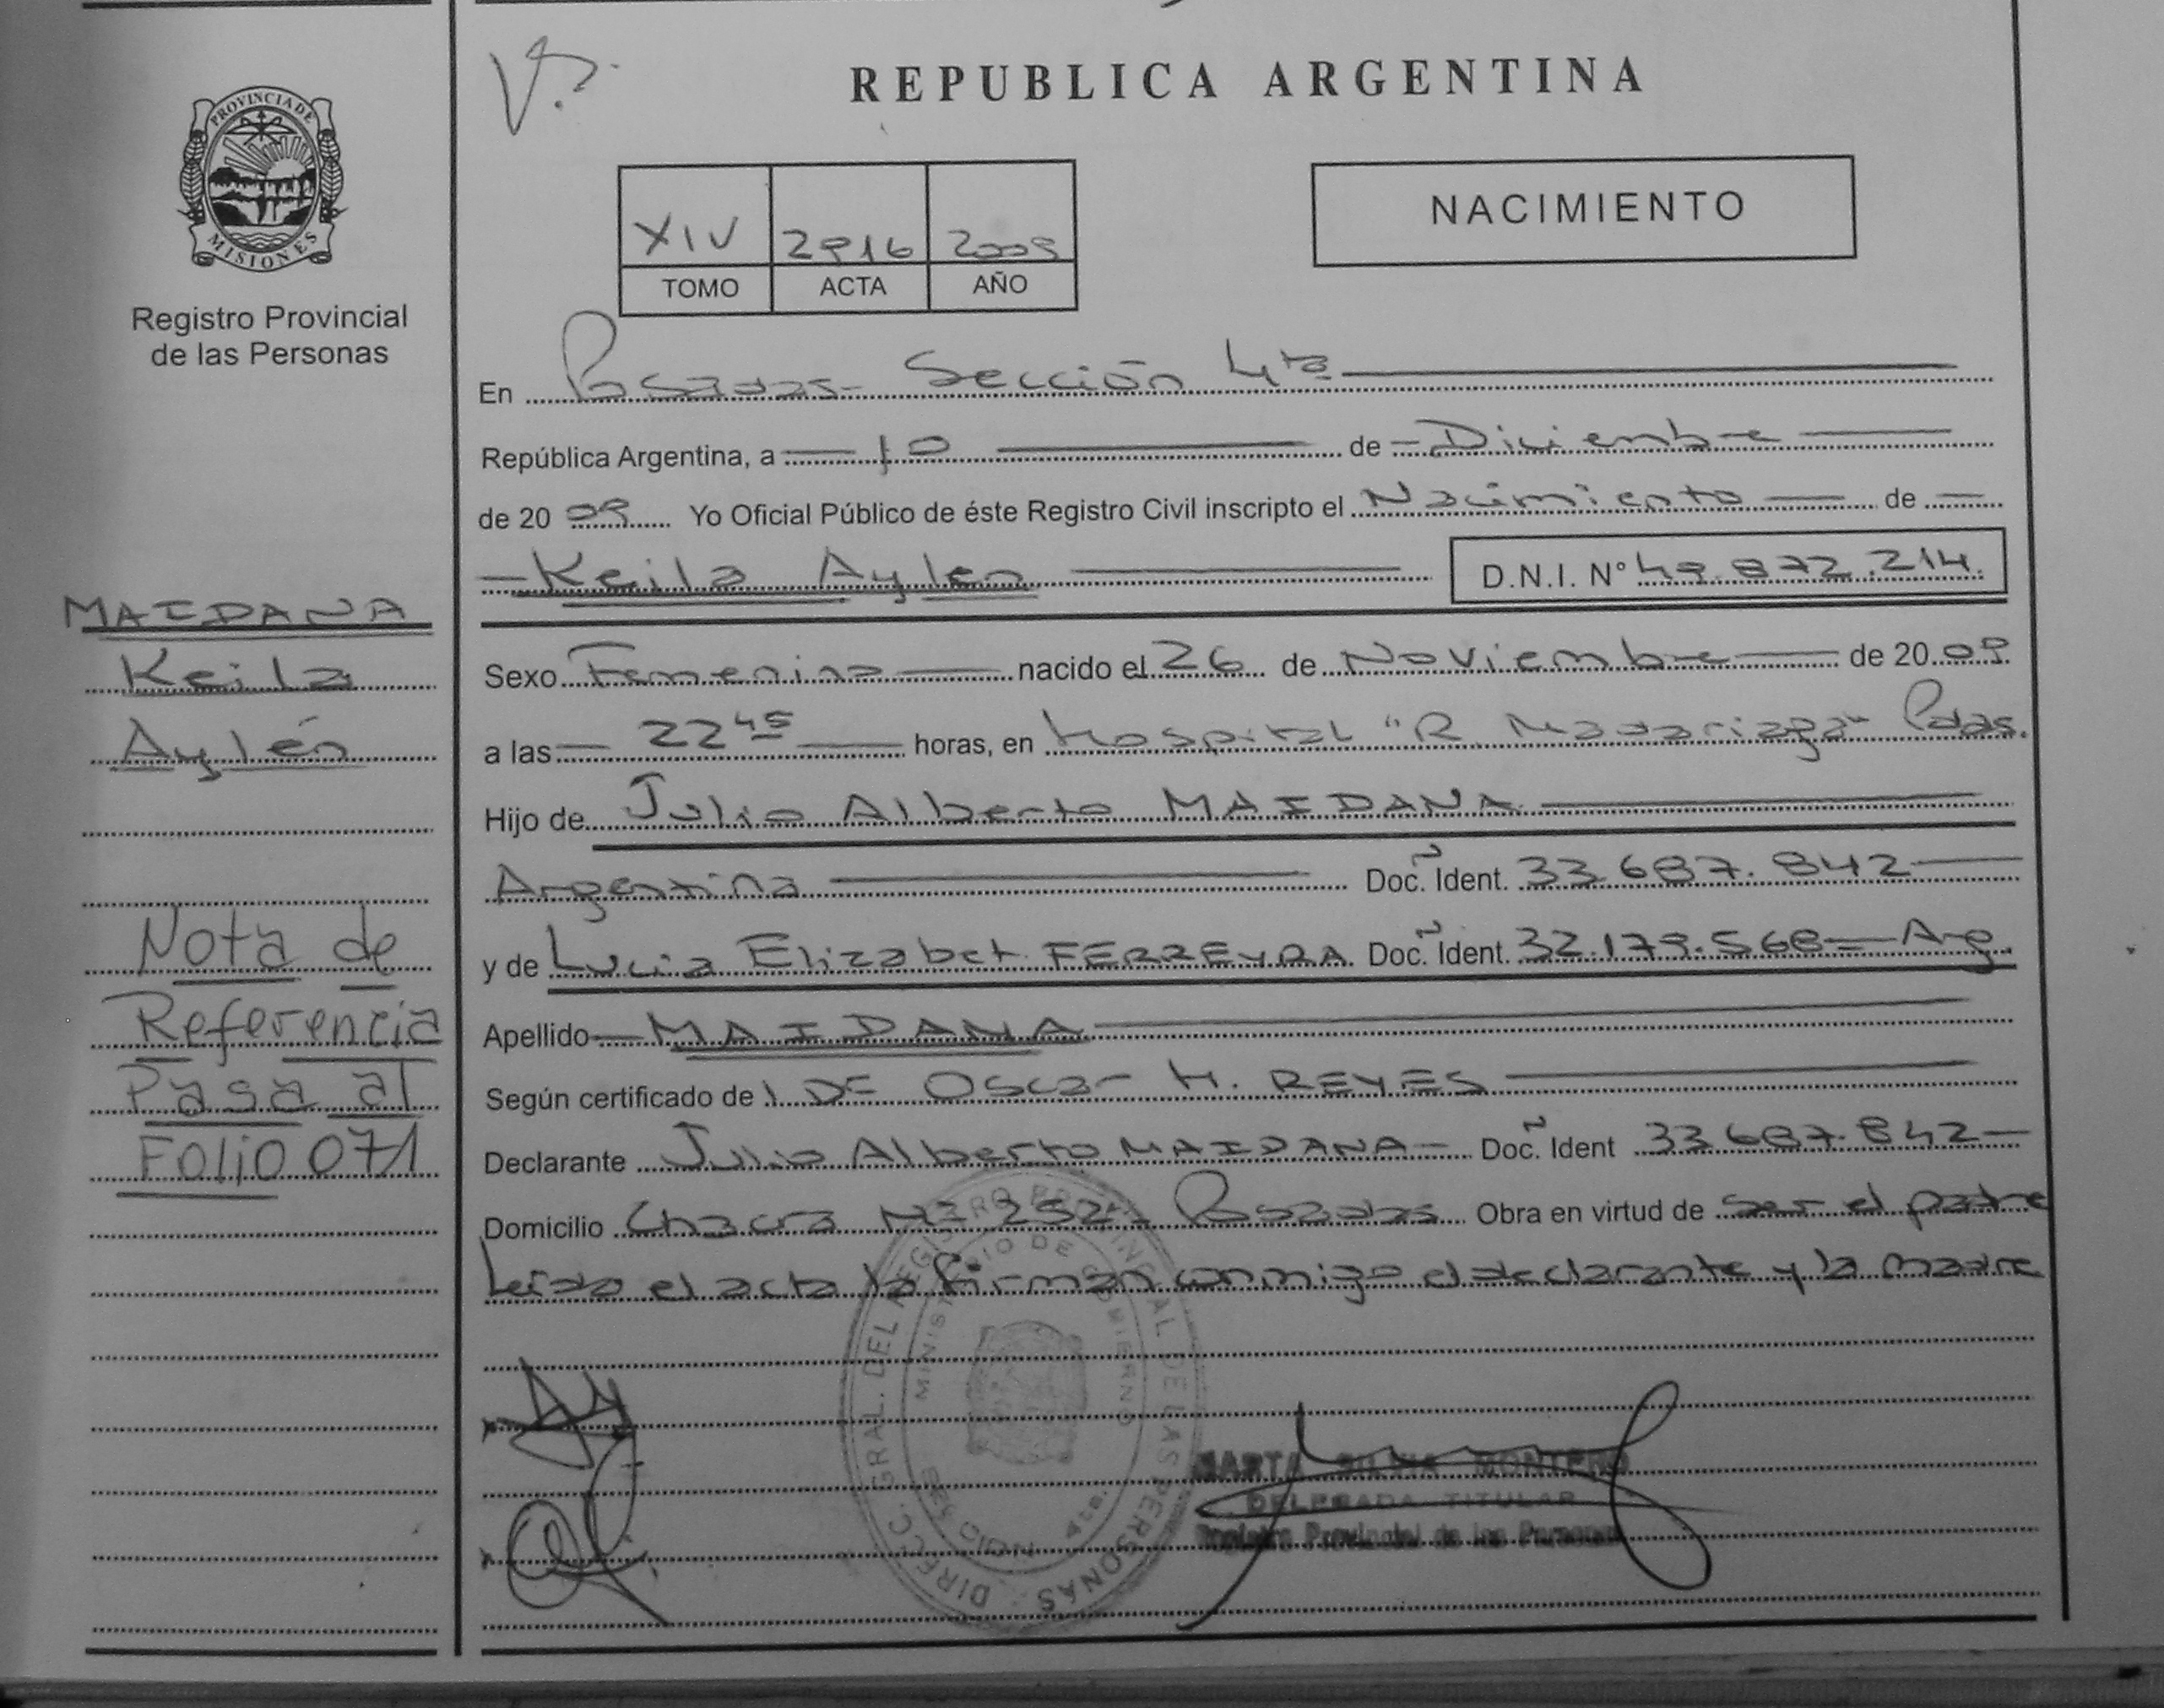 REPUBLICA ARGENTINA
PROVINCIA DE MISIONES
Registro Provincial
de las Personas
XIV 2916 2009
TOMO ACTA AÑO
NACIMIENTO
En Posadas - Sección 4ta
República Argentina, a 10 de Diciembre
de 20 09 Yo Oficial Público de éste Registro Civil inscripto el Nacimiento de
Keila Aylen D.N.I. N° 49.872.214.
MAIDANA
Keila
Aylén
Nota de
Referencia
Pasa al
Folio 071
Sexo Femenino nacido el 26 de Noviembre de 20 09
a las 22 45 horas, en Hospital "R. Madariaga" Pdas.
Hijo de Julio Alberto MAIDANA
Argentina Doc. Ident. 33.687.842
y de Lucia Elizabet FERREYRA Doc. Ident. 32.179.568 - Arg.
Apellido MAIDANA
Según certificado de Oscar H. REYES
Declarante Julio Alberto MAIDANA Doc. Ident 33.687.842
Domicilio Chacra Nº 252 - Posadas Obra en virtud de ser el padre
Leída el acta la firman conmigo el declarante y la madre
DIRECC. GRAL. DEL REGISTRO PROVINCIAL DE LAS PERSONAS
MINISTERIO DE GOBIERNO
MISIONES
MARTA SILVIA MONTERO
DELEGADA TITULAR
Registro Provincial de las Personas